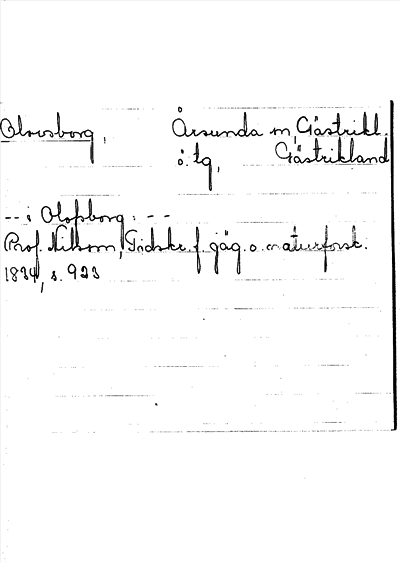 Olovsborg, Årsunda sn, Gästrikl.
ö. tg, Gästrikland
-- i Olofsborg: --
Prof. Nilsson, Tidskr. f. jäg. o. naturforsk.
1834, s. 923